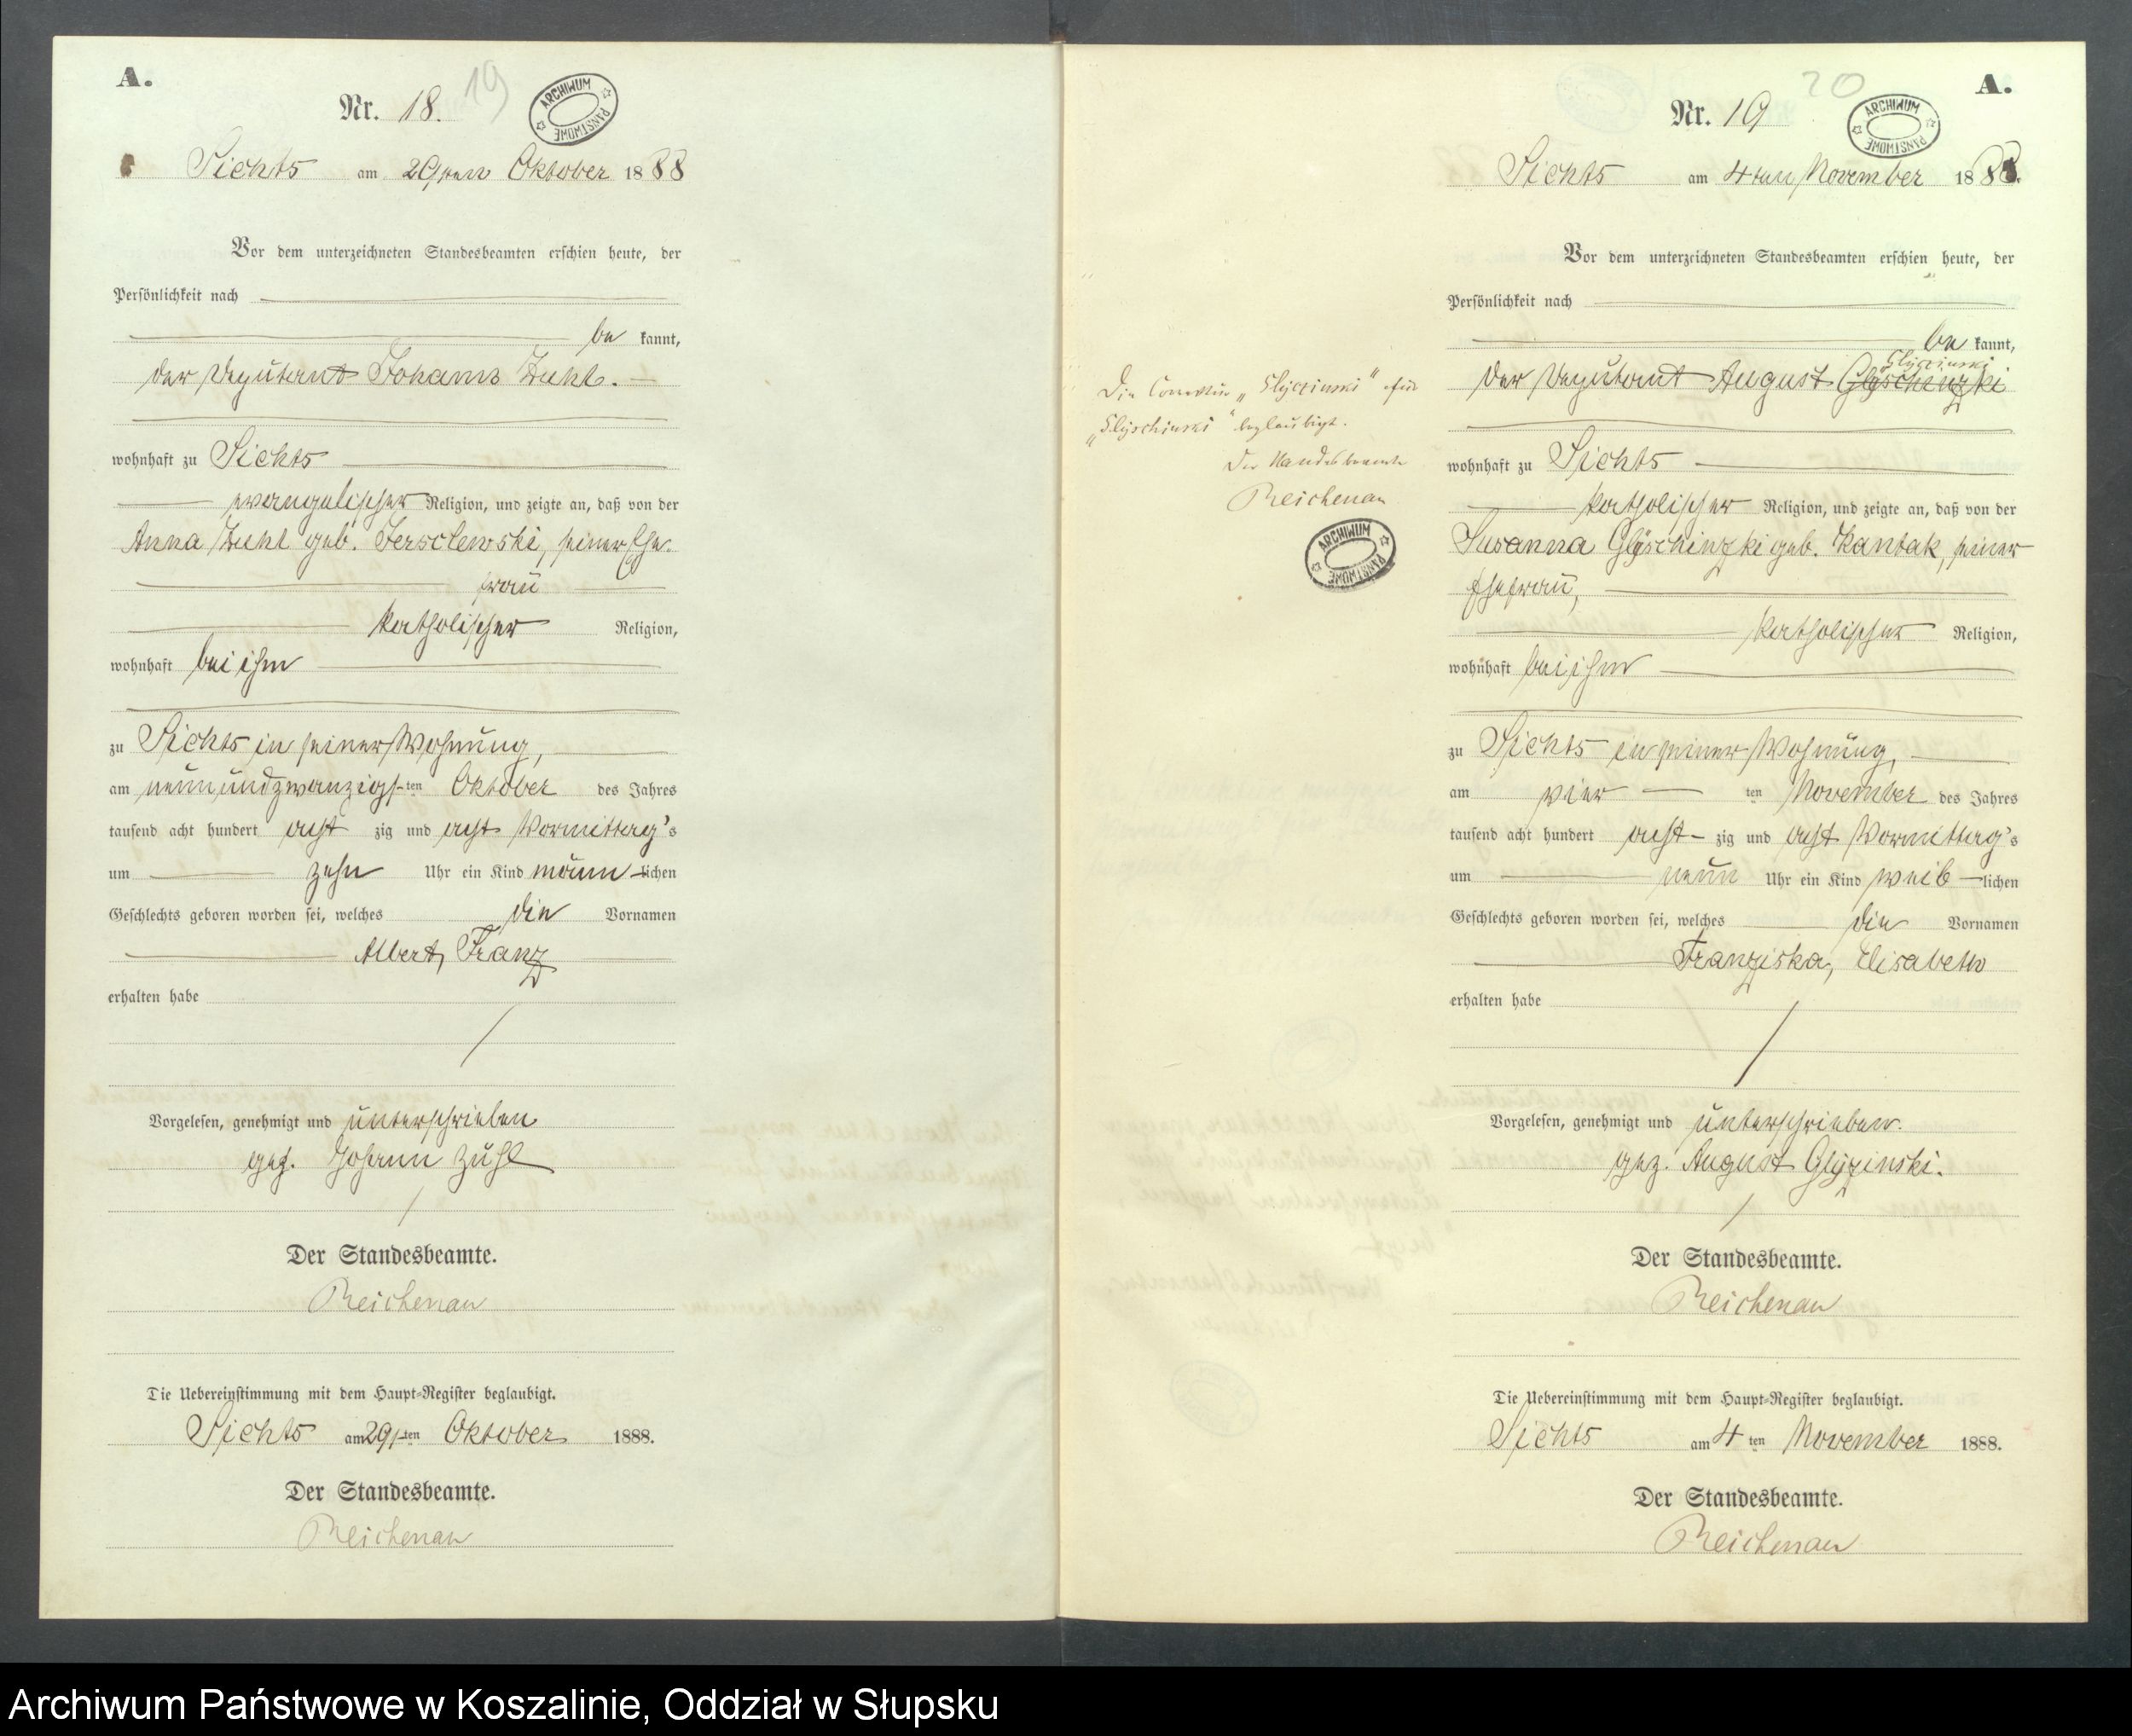 A.
Nr. 18.
19
ARCHIWUM PAŃSTWOWE
Sichts am 29sten Oktober 1888
Vor dem unterzeichneten Standesbeamten erschien heute, der
Persönlichkeit nach
be kannt,
der Deputant Johann Zuhl.
wohnhaft zu Sichts
evangelischer Religion, und zeigte an, daß von der
Anna Zuhl geb. Jersclewski, seiner Ehe-
frau
katholischer Religion,
wohnhaft bei ihm
zu Sichts in seiner Wohnung,
am neunundzwanzigsten Oktober des Jahres
tausend acht hundert acht zig und acht Vormittag's
um zehn Uhr ein Kind männ-lichen
Geschlechts geboren worden sei, welches die Vornamen
Albert, Franz
erhalten habe
Vorgelesen, genehmigt und unterschrieben
gez. Johann Zühl
Der Standesbeamte.
Reichenau
Die Uebereinstimmung mit dem Haupt-Register beglaubigt.
Sichts am 29sten Oktober 1888.
Der Standesbeamte.
Reichenau
A.
Nr. 19
20
ARCHIWUM PAŃSTWOWE
Sichts am 4ten November 1888.
Vor dem unterzeichneten Standesbeamten erschien heute, der
Persönlichkeit nach
be kannt,
Glyczinski
der Deputant August Glÿschinzki
wohnhaft zu Sichts
katholischer Religion, und zeigte an, daß von der
Susanna Glÿschinzki geb. Kantak, seiner
Ehefrau,
katholischer Religion,
wohnhaft bei ihm
zu Sichts in seiner Wohnung,
am vier ten November des Jahres
tausend acht hundert acht- zig und acht Vormittag's
um neun Uhr ein Kind weib-lichen
Geschlechts geboren worden sei, welches die Vornamen
Franziska, Elisabeth
erhalten habe
Vorgelesen, genehmigt und unterschrieben.
gez. August Glÿzinski.
Der Standesbeamte.
Reichenau
Die Uebereinstimmung mit dem Haupt-Register beglaubigt.
Sichts am 4 ten November 1888.
Der Standesbeamte.
Reichenau
Die Correktur "Glyczinski" für
"Glyschinski" beglaubigt.
Der Standesbeamte
Reichenau
ARCHIWUM PAŃSTWOWE
Archiwum Państwowe w Koszalinie, Oddział w Słupsku